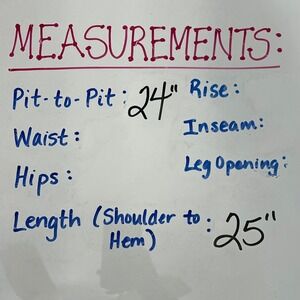 MEASUREMENTS:
Pit-to-Pit: 24"
Rise:
Waist:
Inseam:
Hips:
Leg Opening:
Length (Shoulder to Hem): 25"